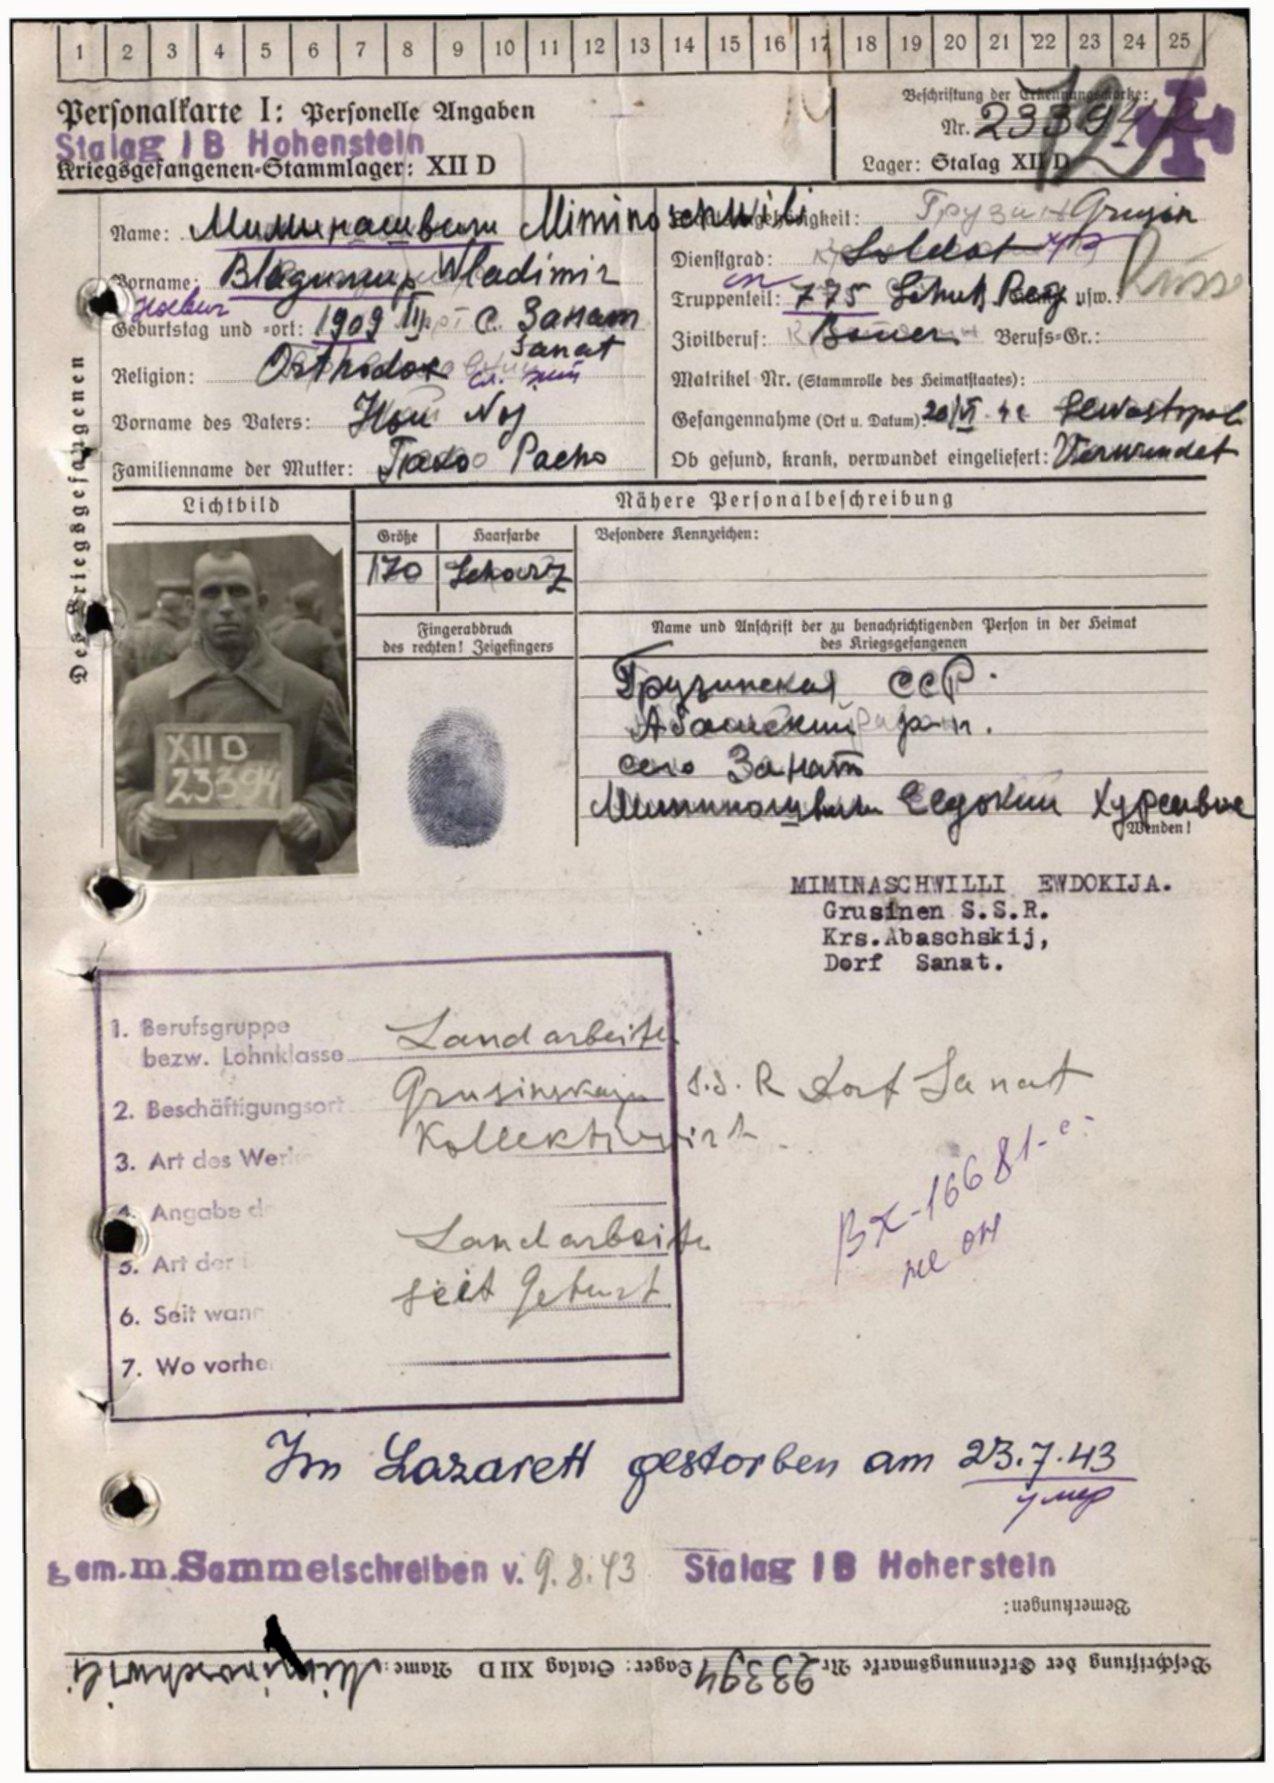 1 2 3 4 5 6 7 8 9 10 11 12 13 14 15 16 17 18 19 20 21 22 23 24 25
Personalkarte I: Personelle Angaben
Stalag I B Hohenstein
Kriegsgefangenen-Stammlager: XII D
Beschriftung der Erkennungsmarke:
Nr. 23394
Lager: Stalag XII D
Des Kriegsgefangenen
Name: Миминашвили Miminoschwili
Vorname: Владимир Wladimir
Geburtstag und -ort: 1909 III с. Занат
Sanat
Religion: Orthodox
Vorname des Vaters: Ной Noj
Familienname der Mutter: Пахо Pacho
Staatsangehörigkeit: Грузин Grusin
Russe
Dienstgrad: Soldat
Truppenteil: 775 Schutz Reg usw.:
Zivilberuf: Bauer Berufs-Gr.:
Matrikel Nr. (Stammrolle des Heimatstaates):
Gefangennahme (Ort u. Datum): 20/VI. 42 Sewastopol
Ob gesund, krank, verwundet eingeliefert: Verwundet
Lichtbild
Nähere Personalbeschreibung
Größe Haarfarbe Besondere Kennzeichen:
170 Schwarz
Fingerabdruck
des rechten! Zeigefingers
Name und Anschrift der zu benachrichtigenden Person in der Heimat
des Kriegsgefangenen
Грузинская ССР.
Абашский р-н.
село Занати
Миминашвили Евдокии
Wenden!
XII D
23394
MIMINASCHWILLI EWDOKIJA.
Grusinen S.S.R.
Krs.Abaschskij,
Dorf Sanat.
1. Berufsgruppe
bezw. Lohnklasse Landarbeiter
2. Beschäftigungsort Grusinskaja S.S.R Dorf Sanat
3. Art des Werk Kollektivwirt
4. Angabe d
5. Art der Landarbeiter
6. Seit wann seit Geburt
7. Wo vorhe
ВХ-16681-с
не он
Im Lazarett gestorben am 23.7.43
умер
gem.m.Sammelschreiben v. 9.8.43 Stalag I B Hohenstein
Bemerkungen:
Beschriftung der Erkennungsmarke Nr 23394 Lager: Stalag XII D Name: Miminoschwili